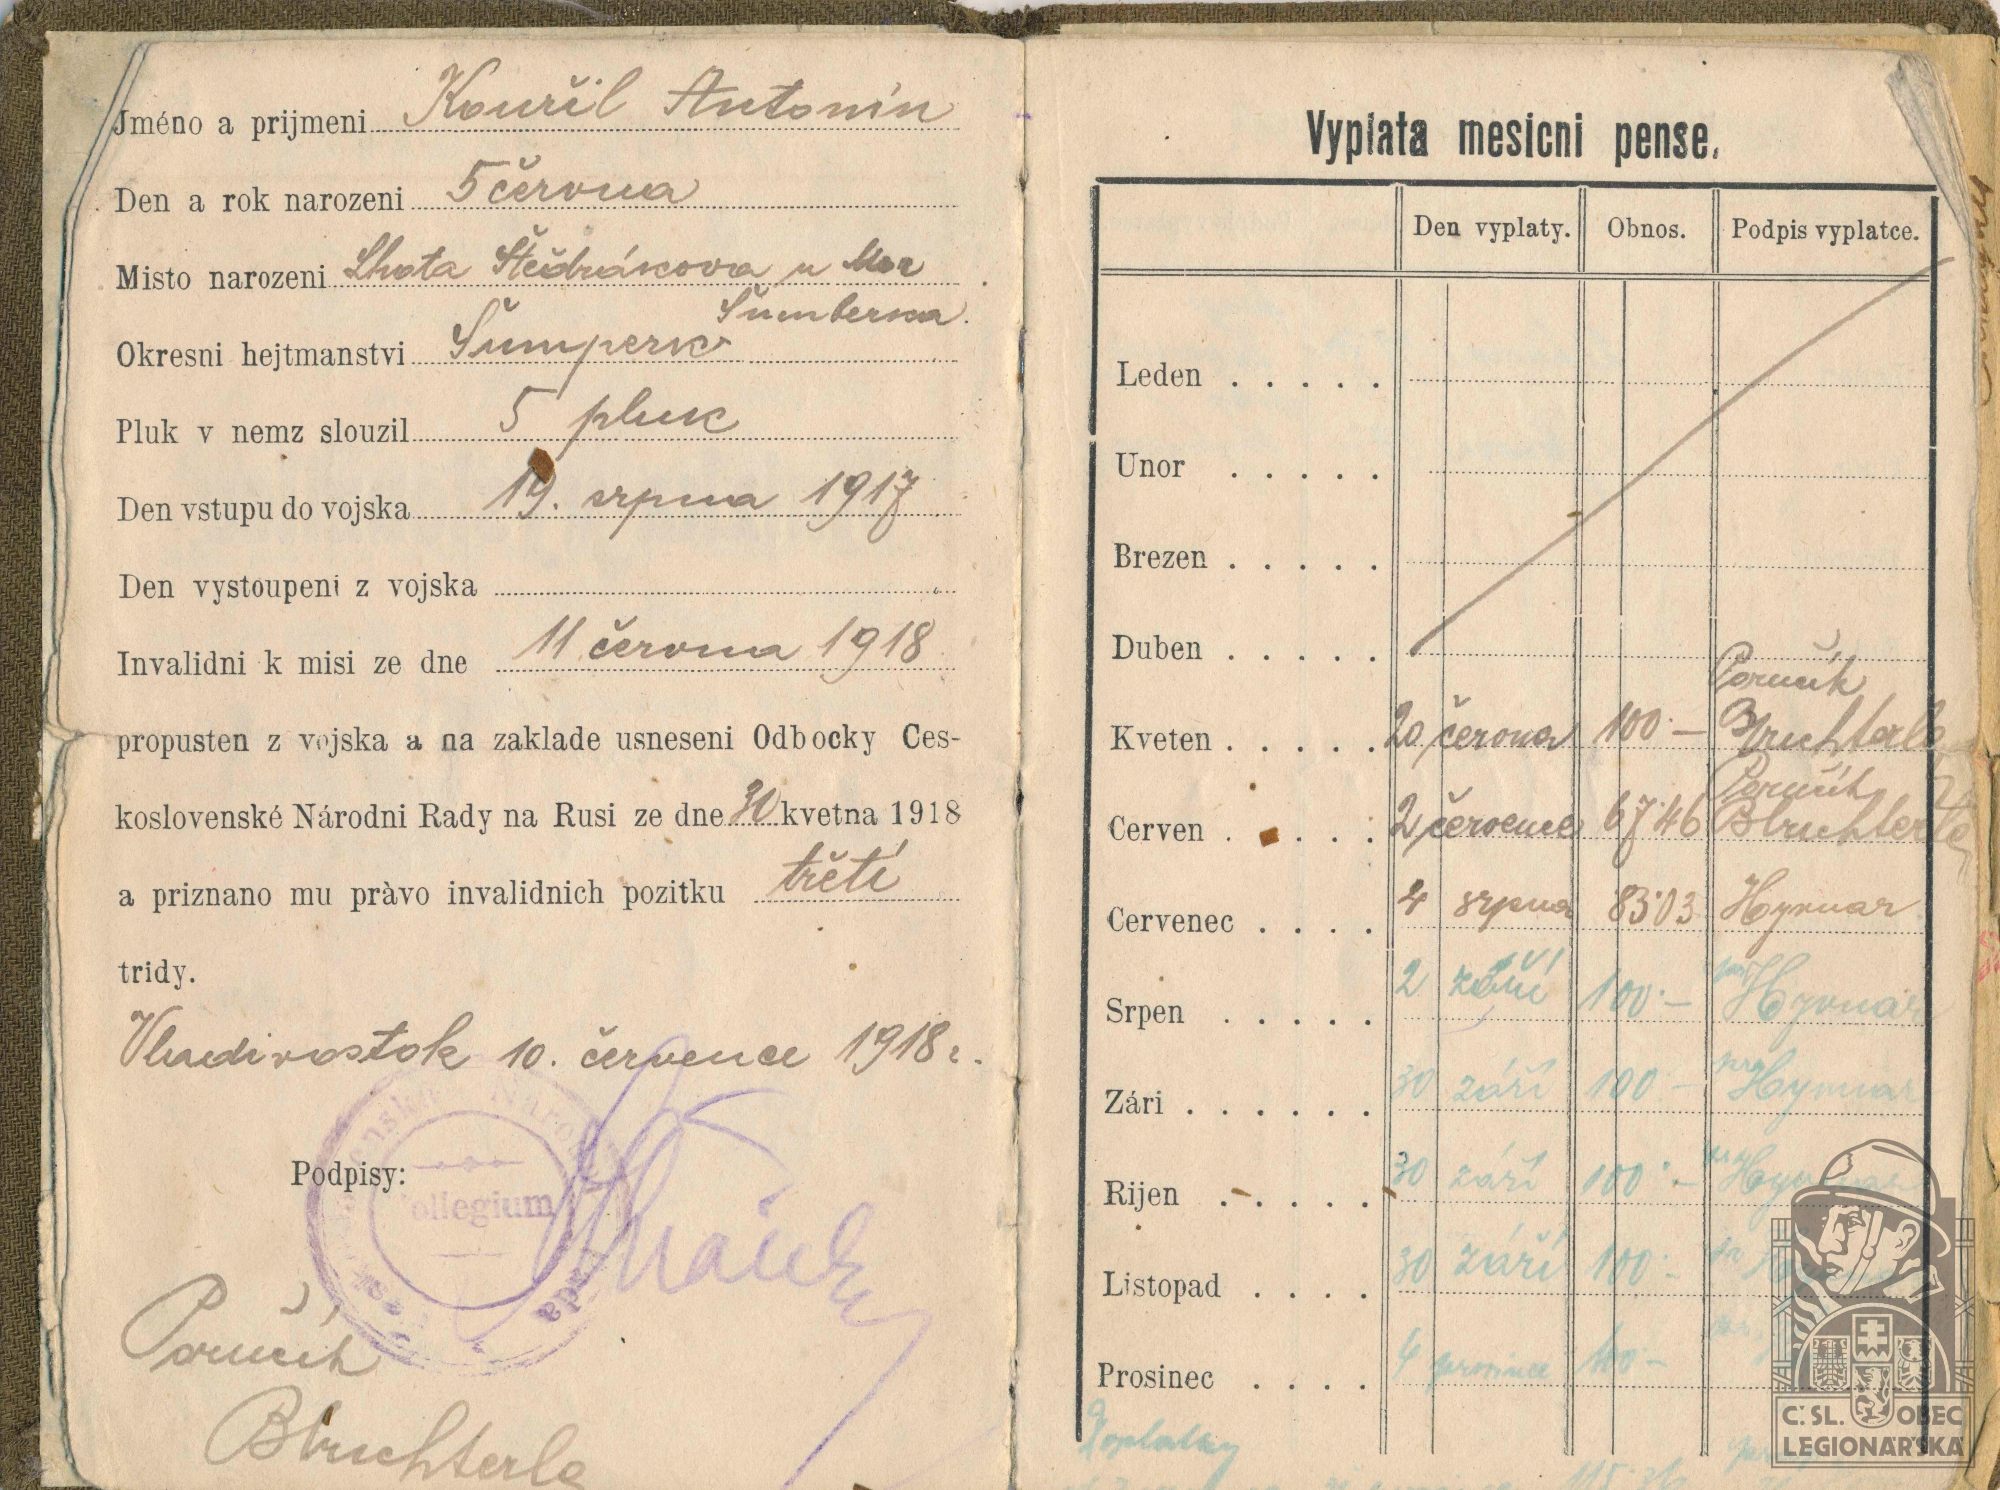 Jméno a prijmeni Kouřil Antonín
Den a rok narozeni 5 června
Misto narozeni Lhota Štědrákova u Mor
Šumberka.
Okresni hejtmanstvi Šumperk
Pluk v nemz slouzil 5 pluk
Den vstupu do vojska 19. srpna 1917
Den vystoupeni z vojska
Invalidni k misi ze dne 11 června 1918
propusten z vojska a na zaklade usneseni Odbocky Ces-
koslovenské Národni Rady na Rusi ze dne 30 kvetna 1918
a priznano mu pràvo invalidnich pozitku třetí
tridy.
Vladivostok 10. července 1918 r.
Podpisy:
Collegium
Poručík
Vyplata mesicni pense.
Den vyplaty. Obnos. Podpis vyplatce.
Leden
Unor
Brezen
Duben
Poručík
Kveten 20 června 100 —
Poručík
Cerven 2 července 67·46
Cervenec 4 srpna 83·03 Hyvnar
Srpen 2 září 100·— Hyvnar
Zári 30 září 100 — Hyvnar
Rijen 30 září 100·—
Listopad 30 září 100·—
Prosinec 4 prosince 100·—
Doplatky
Č. SL. OBEC
LEGIONÁŘSKÁ